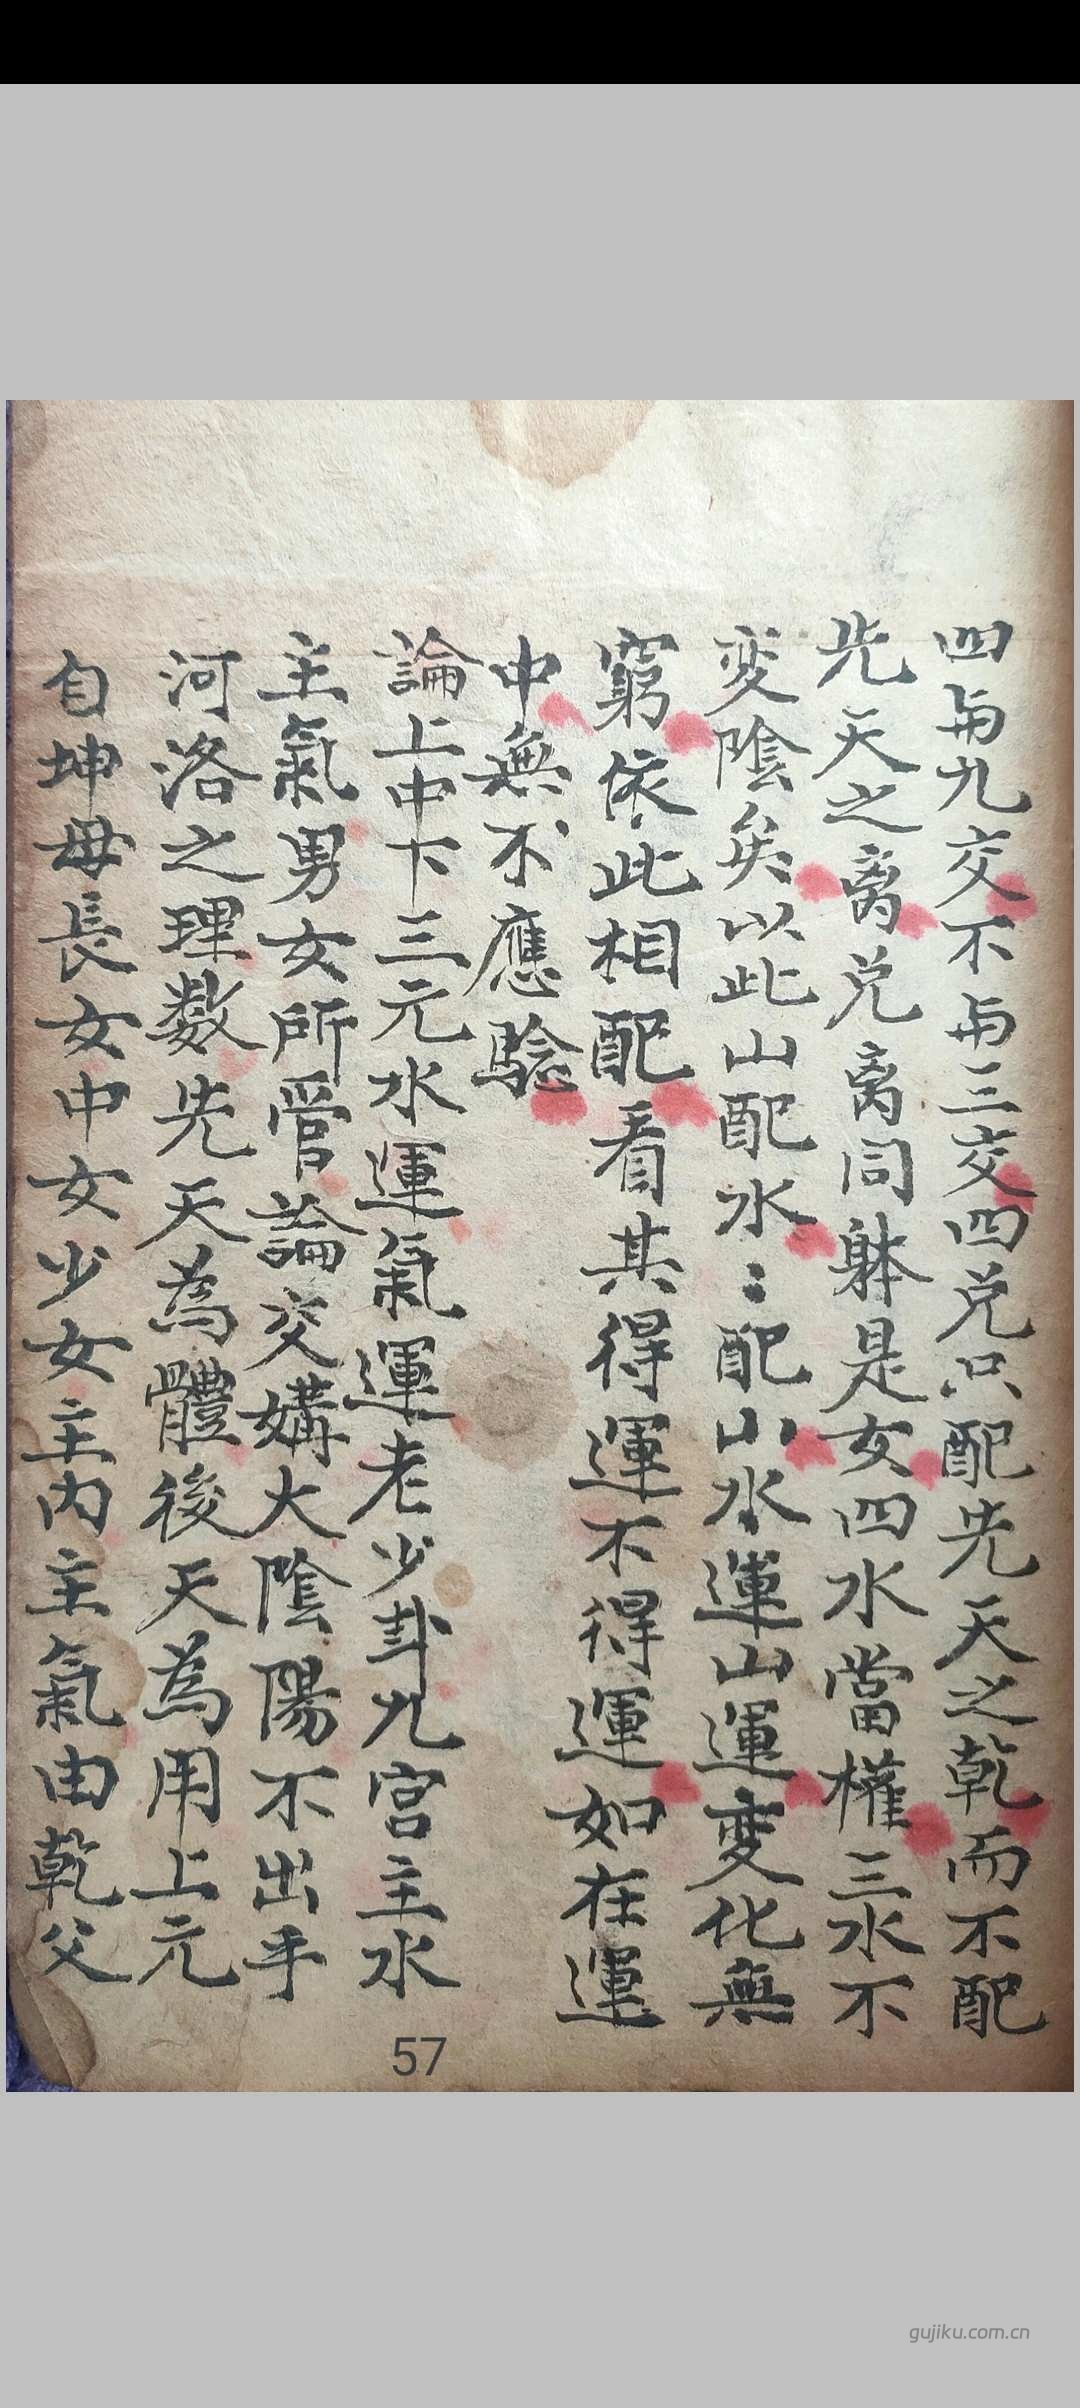 四与九交不与三交四兑只配先天之乾而不配
先天之离兑离同躰是女四水當權三水不
变陰矣以此山配水〻配山水運山運变化無
窮依此相配看其得運不得運如在運
中無不應驗
論上中下三元水運氣運老少卦九宫主水
主氣男女所管論交媾大陰陽不出乎
河洛之理数先天為體後天為用上元
自坤母長女中女少女主内主氣由乾父
57
gujiku.com.cn